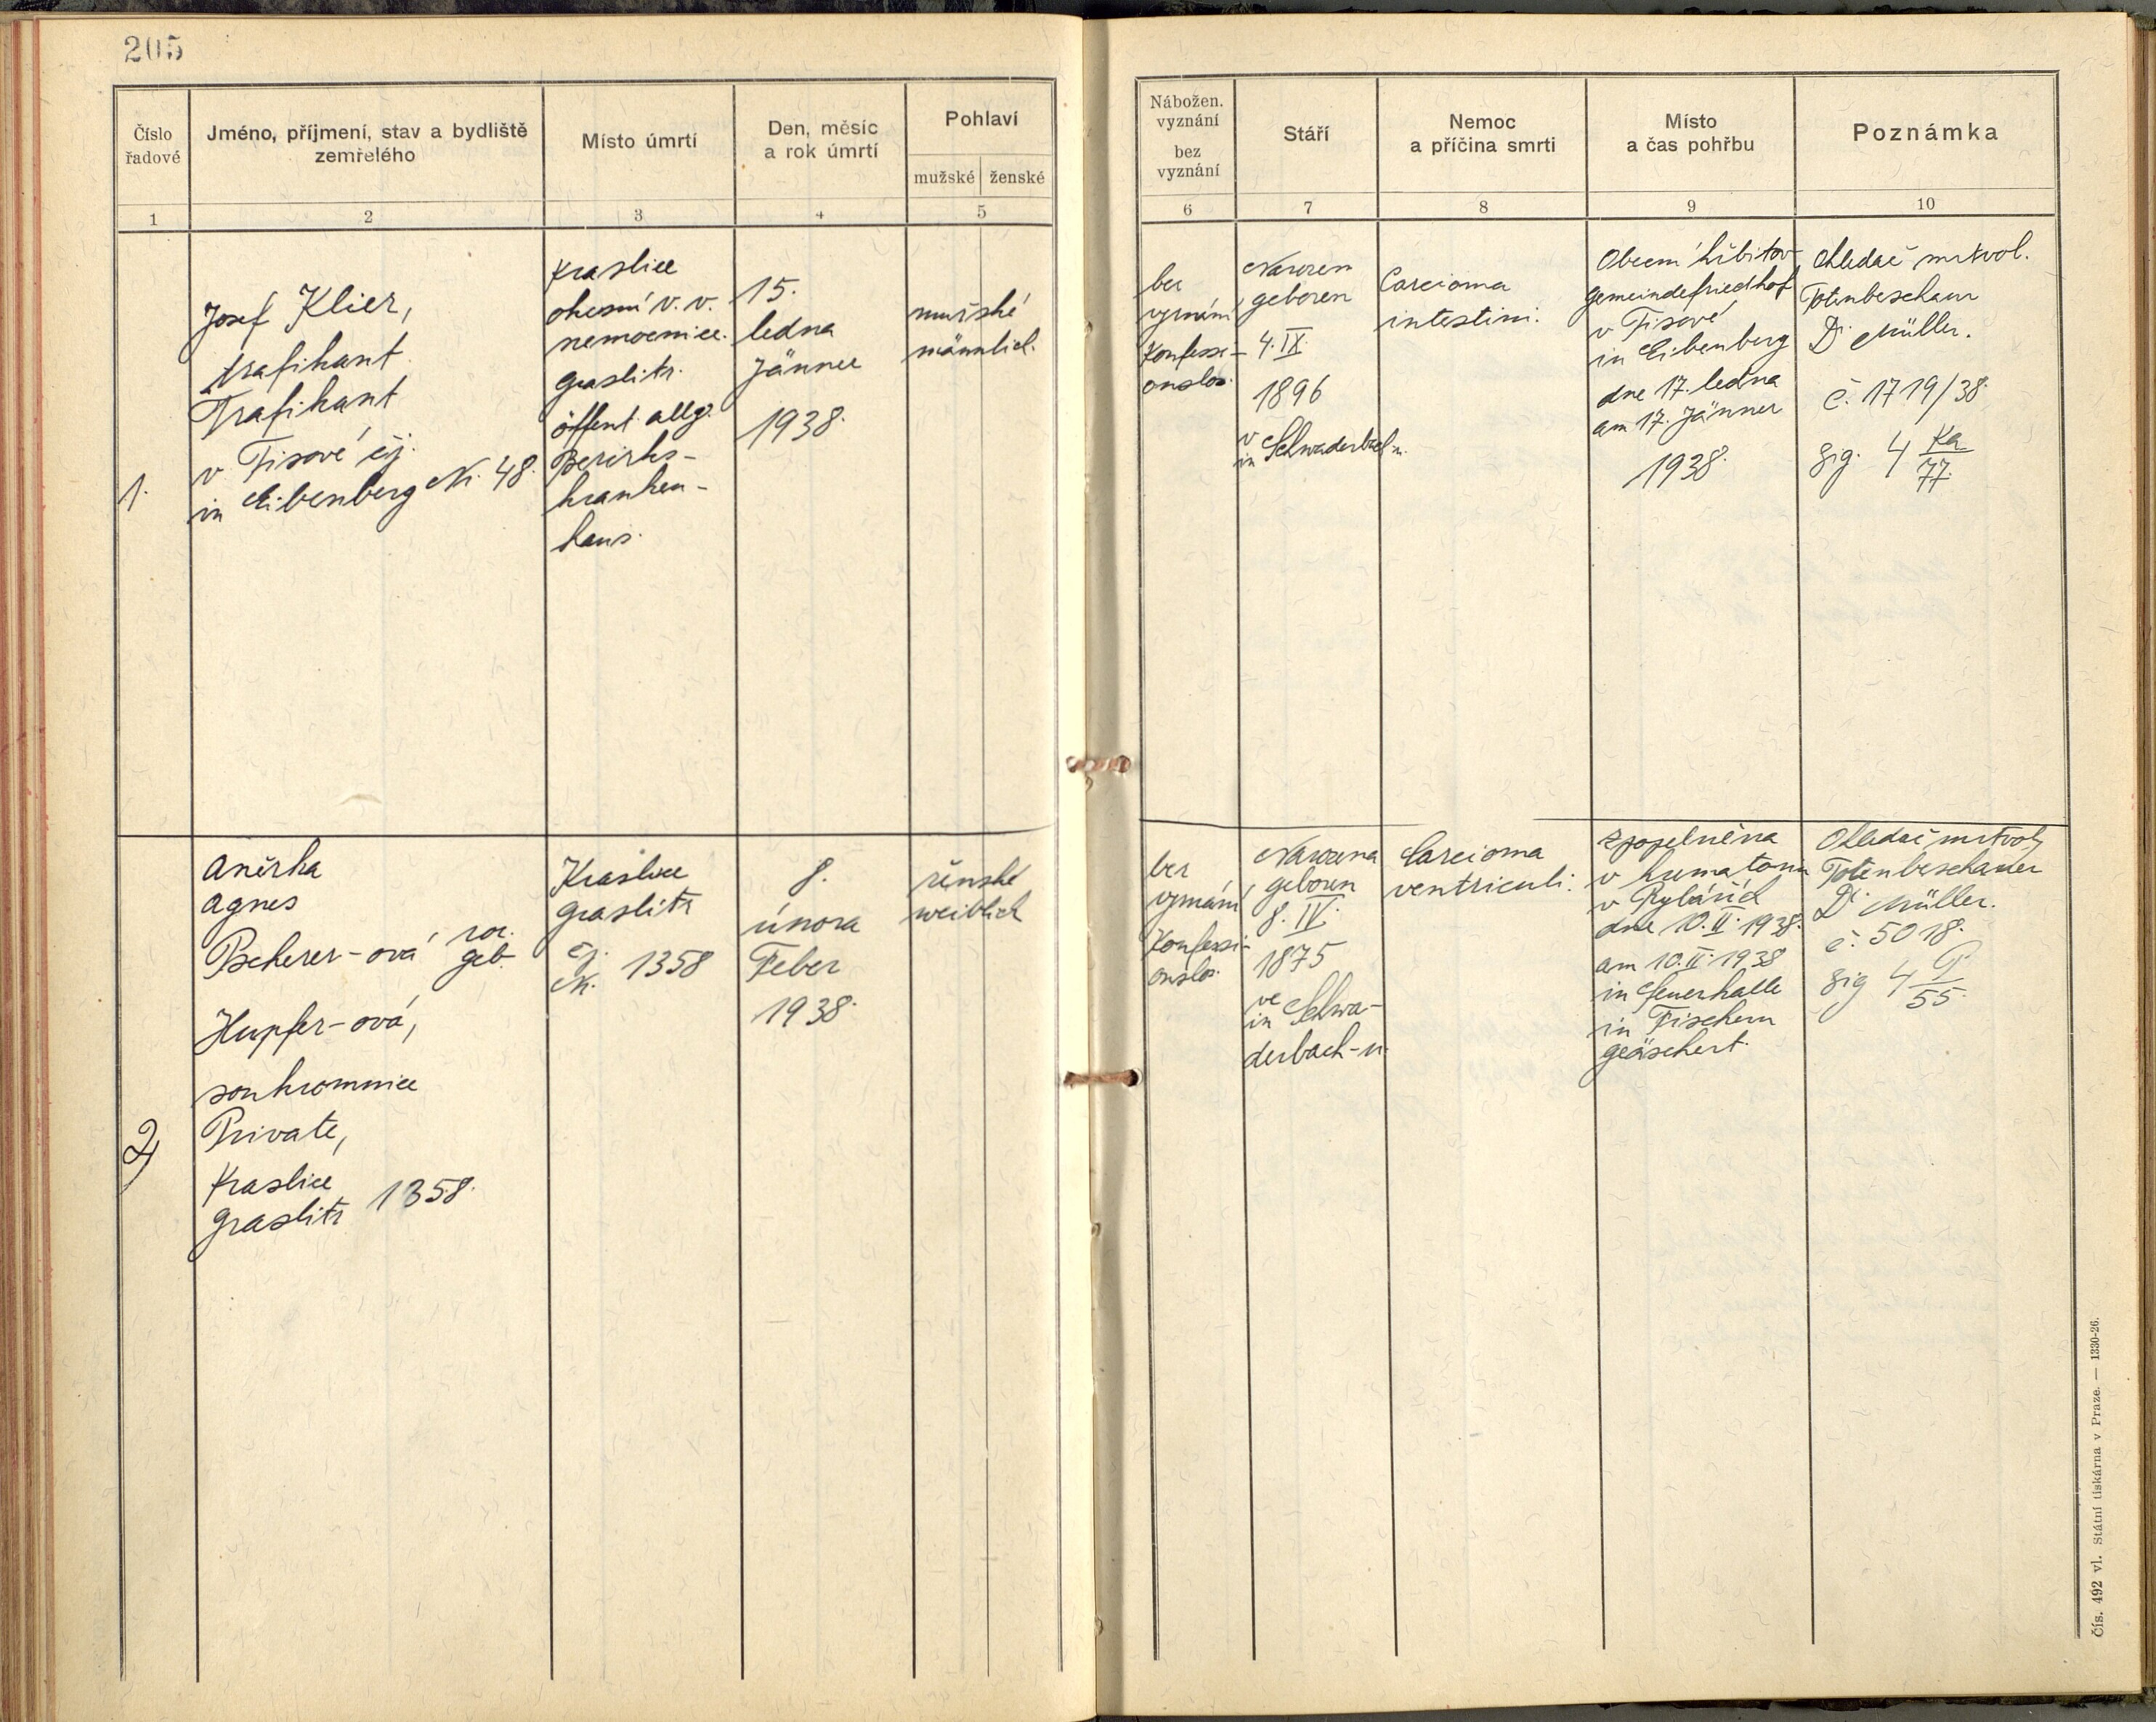 205
Číslo
řadové
Jméno, příjmení, stav a bydliště
zemřelého
Místo úmrtí
Den, měsíc
a rok úmrtí
Pohlaví
mužské
ženské
1
2
3
4
5
1.
Josef Klier,
trafikant
Trafikant
v Tisové čj.
in Eibenberg Nr. 48.
Kraslice
okresní v. v.
nemocnice.
Graslitz.
öffent. allg.
Bezirks-
kranken-
haus.
15.
ledna
Jänner
1938.
mužské
männlich.
2)
Anežka
Agnes
Pscherer-ová roz.
geb.
Hupfer-ová,
soukromnice
Private,
Kraslice
Graslitz 1358.
Kraslice
Graslitz
čj.
Nr. 1358
8.
února
Feber
1938.
ženské
weiblich
Nábožen.
vyznání
bez
vyznání
Stáří
Nemoc
a příčina smrti
Místo
a čas pohřbu
Poznámka
6
7
8
9
10
bez
vyznání
Konfessi-
onslos.
Narozen
geboren
4. IX.
1896
v
in Schwaderbach-u.
Carcioma
intestini.
Obecní hřbitov
Gemeindefriedhof
v Tisové
in Eibenberg
dne 17. ledna
am 17. Jänner
1938.
Ohledač mrtvol.
Totenbeschauer
Dr. Müller.
č. 1719/38.
sig. 4 Ka/77.
bez
vyznání
Konfessi-
onslos.
Narozena
geboren
8. IV.
1875
ve
in Schwa-
derbach-u.
Carcioma
ventriculi.
Zpopelněna
v krematoriu
v Rybářích
dne 10. II. 1938.
am 10. II. 1938
in Feuerhalle
in Fischern
geäschert.
Ohledač mrtvol,
Totenbeschauer
Dr. Müller.
č. 5018.
sig 4 P/55.
Čís. 492 vl. Státní tiskárna v Praze. — 1330-26.